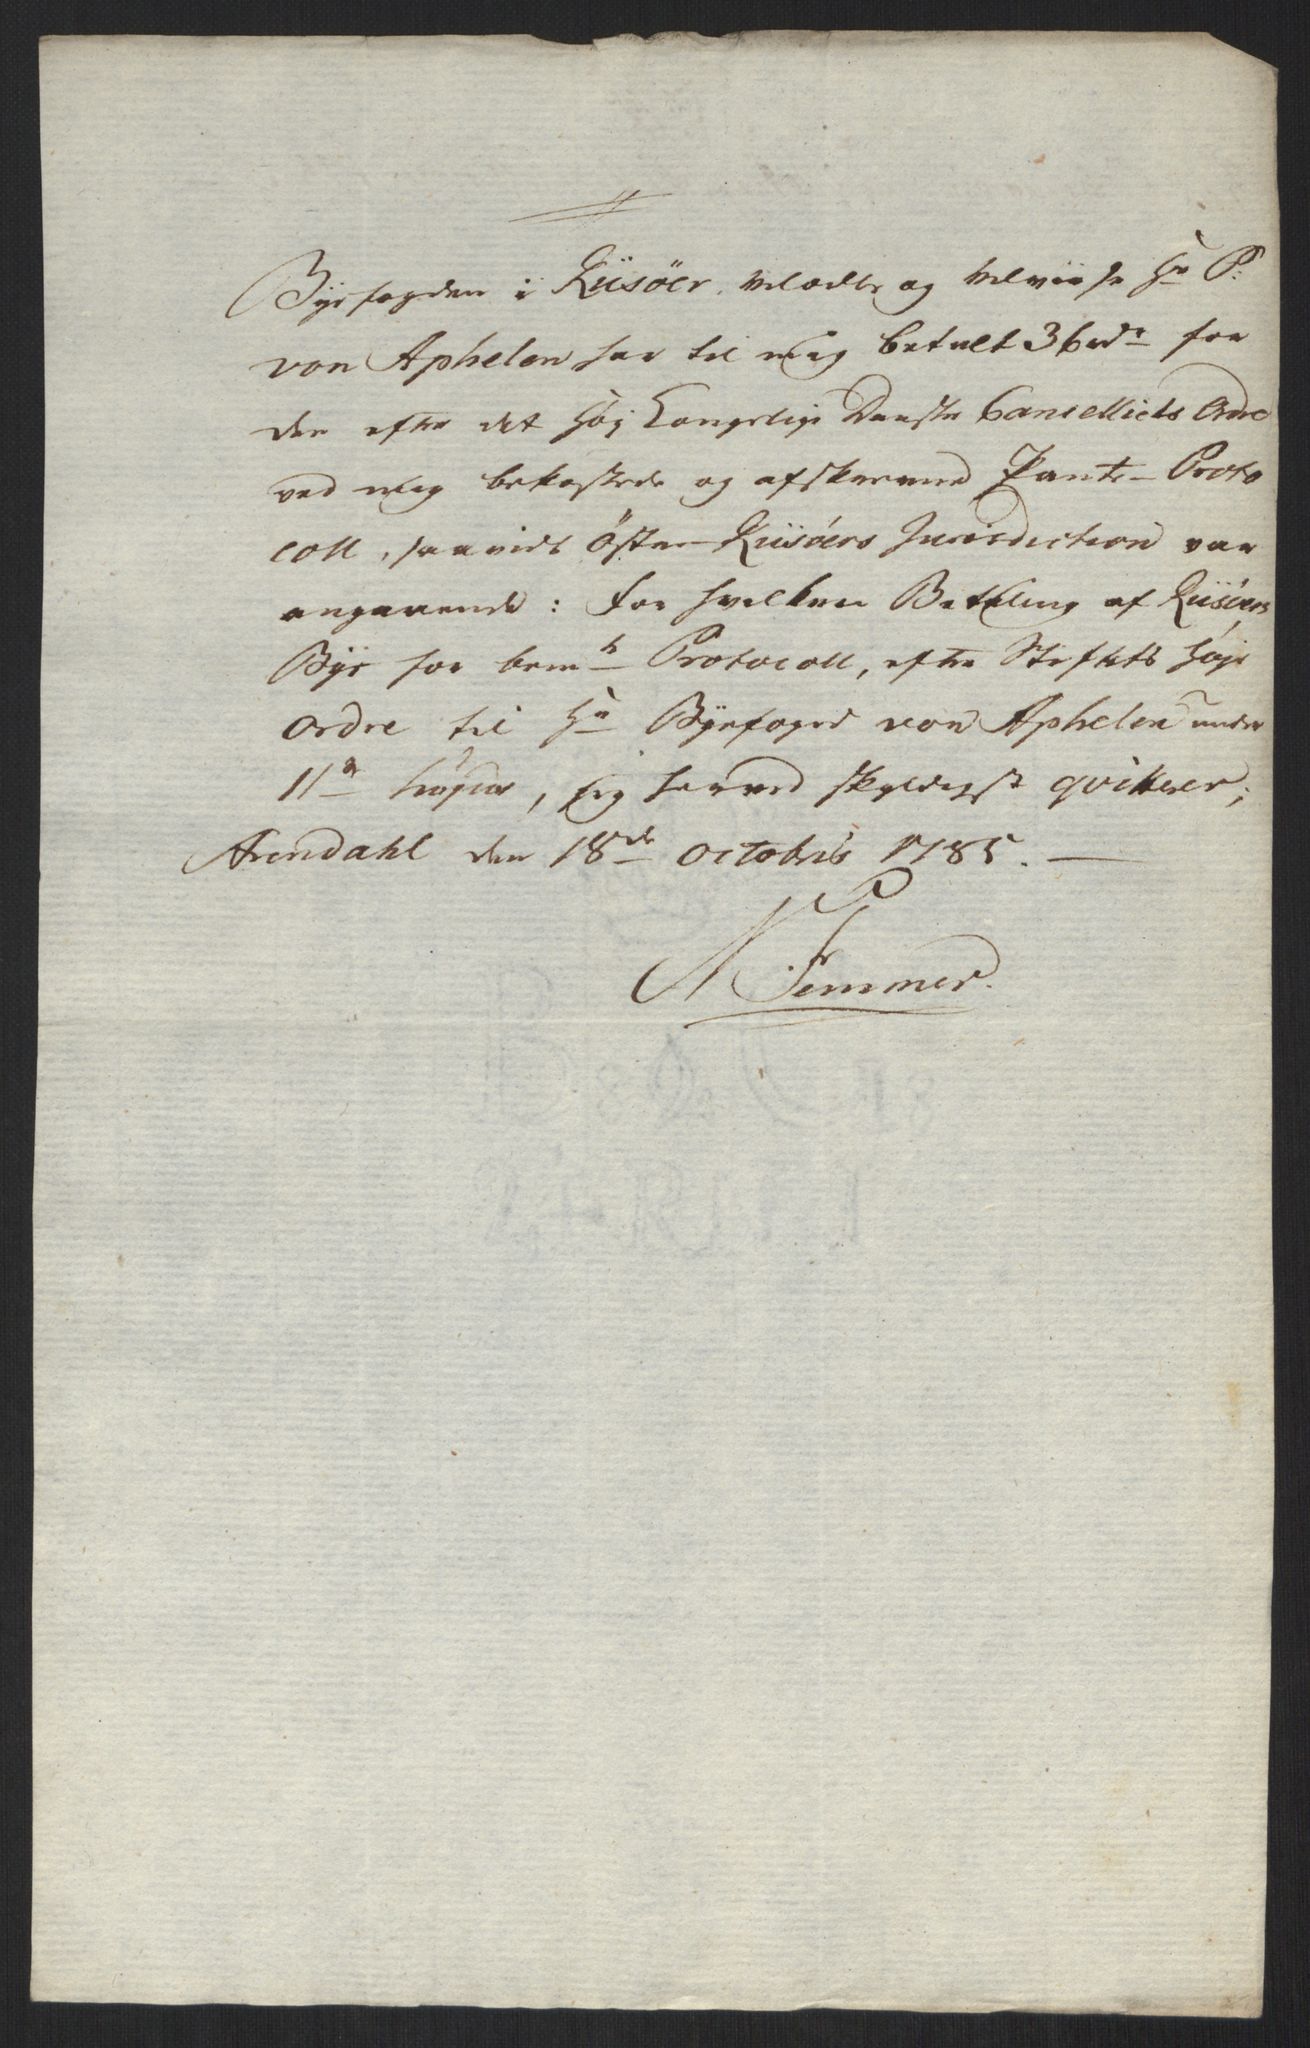 Byefogden i Riisöer, Velædle og Velviise Hr P:
von Aphelen har til mig betalt 36 rdr for
den efter det Høy Kongelige Danske Cancellies Ordre
ved mig bekostede og afskrevne Pante-Proto
coll, saavidt Öster-Riisöers Jurisdiction var
angaaende: For hvilken Betaling af Riisöers
Bÿe for bemte Protocoll, efter Stiftets høje
Ordre til Hr Bÿefoged von Aphelen under
11te hujus, jeg herved skyldigst qvitterer;
Arendahl den 18de Octobris 1785.
N Semmer.